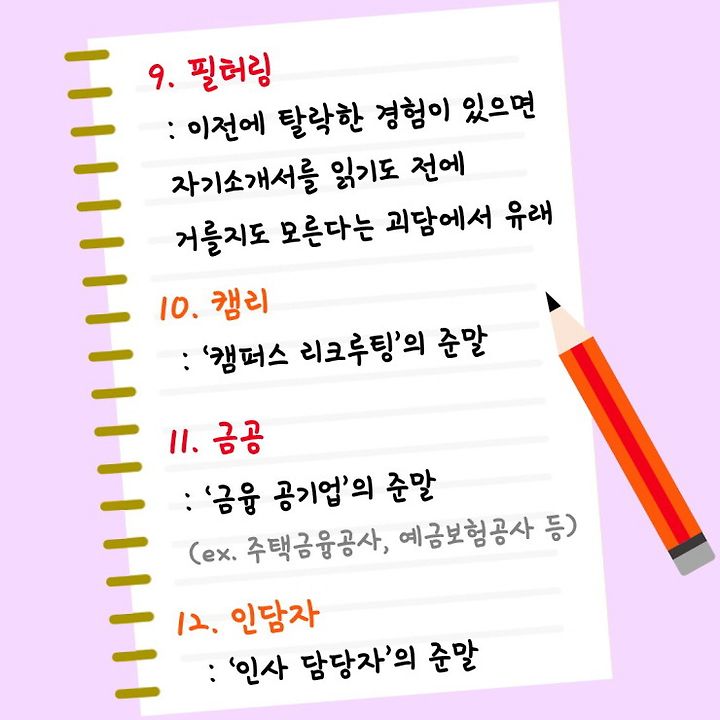 9. 필터링
: 이전에 탈락한 경험이 있으면
자기소개서를 읽기도 전에
거를지도 모른다는 괴담에서 유래
10. 캠리
: ‘캠퍼스 리크루팅’의 준말
11. 금공
: ‘금융 공기업’의 준말
(ex. 주택금융공사, 예금보험공사 등)
12. 인담자
: ‘인사 담당자’의 준말